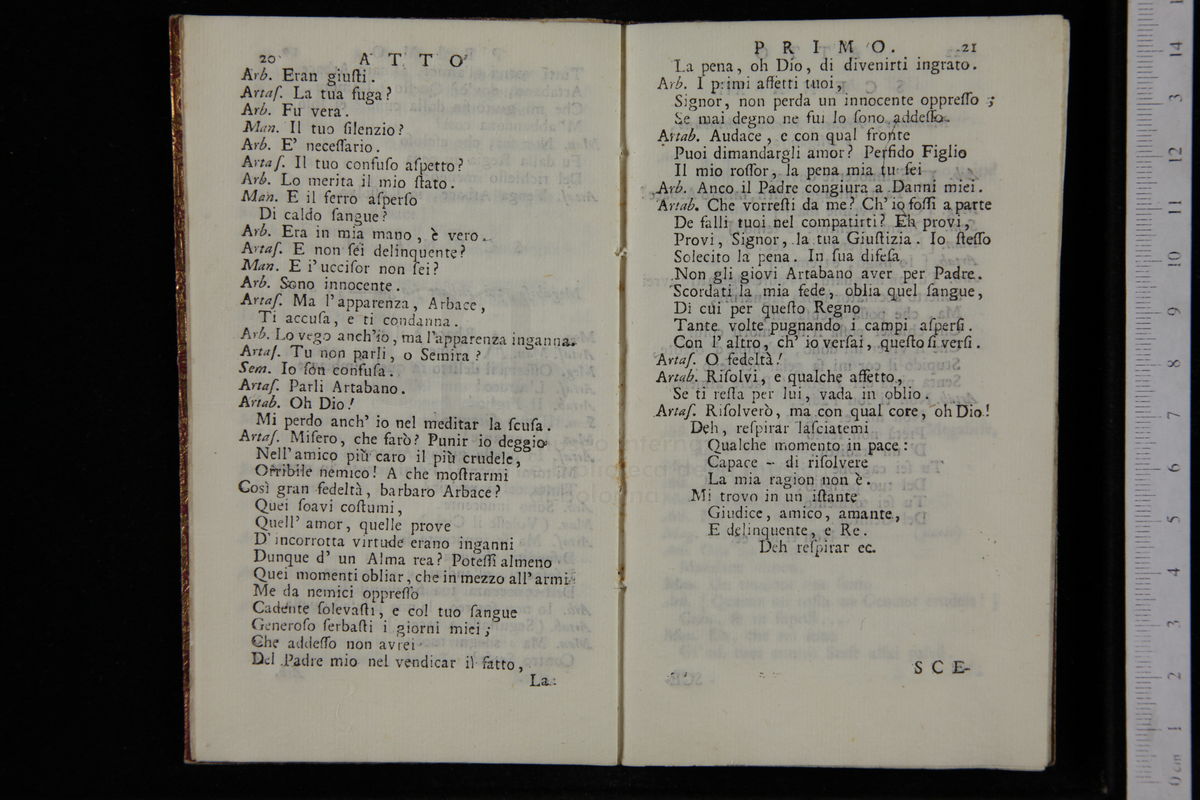 20 ATTO
Arb. Eran giuſti.
Artaſ. La tua fuga?
Arb. Fu vera.
Man. Il tuo ſilenzio?
Arb. E' neceſſario.
Artaſ. Il tuo confuſo aſpetto?
Arb. Lo merita il mio ſtato.
Man. E il ferro aſperſo
Di caldo ſangue?
Arb. Era in mia mano, è vero.
Artaſ. E non ſei delinquente?
Man. E l'ucciſor non ſei?
Arb. Sono innocente.
Artaſ. Ma l'apparenza, Arbace,
Ti accuſa, e ti condanna.
Arb. Lo vego anch'io, ma l'apparenza inganna.
Artaſ. Tu non parli, o Semira?
Sem. Io ſon confuſa.
Artaſ. Parli Artabano.
Artab. Oh Dio!
Mi perdo anch' io nel meditar la ſcuſa.
Artaſ. Miſero, che farò? Punir io deggio
Nell'amico più caro il più crudele,
Orribile nemico! A che moſtrarmi
Così gran fedeltà, barbaro Arbace?
Quei ſoavi coſtumi,
Quell' amor, quelle prove
D'incorrotta virtude erano inganni
Dunque d' un Alma rea? Poteſſi almeno
Quei momenti obliar, che in mezzo all'armi
Me da nemici oppreſſo
Cadente ſolevaſti, e col tuo ſangue
Generoſo ſerbaſti i giorni miei;
Che addeſſo non avrei
Del Padre mio nel vendicar il fatto,
La
PRIMO. 21
La pena, oh Dio, di divenirti ingrato.
Arb. I primi affetti tuoi,
Signor, non perda un innocente oppreſſo;
Se mai degno ne fui lo ſono addeſſo.
Artab. Audace, e con qual fronte
Puoi dimandargli amor? Perfido Figlio
Il mio roſſor, la pena mia tu ſei
Arb. Anco il Padre congiura a Danni miei.
Artab. Che vorreſti da me? Ch' io foſſi a parte
De falli tuoi nel compatirti? Eh provi,
Provi, Signor, la tua Giuſtizia. Io ſteſſo
Solecito la pena. In ſua difeſa
Non gli giovi Artabano aver per Padre.
Scordati la mia fede, oblia quel ſangue,
Di cui per queſto Regno
Tante volte pugnando i campi aſperſi.
Con l' altro, ch' io verſai, queſto ſi verſi.
Artaſ. O fedeltà!
Artab. Riſolvi, e qualche affetto,
Se ti reſta per lui, vada in oblio.
Artaſ. Riſolverò, ma con qual core, oh Dio!
Deh, reſpirar laſciatemi
Qualche momento in pace:
Capace - di riſolvere
La mia ragion non è.
Mi trovo in un iſtante
Giudice, amico, amante,
E delinquente, e Re.
Deh reſpirar ec.
SCE-